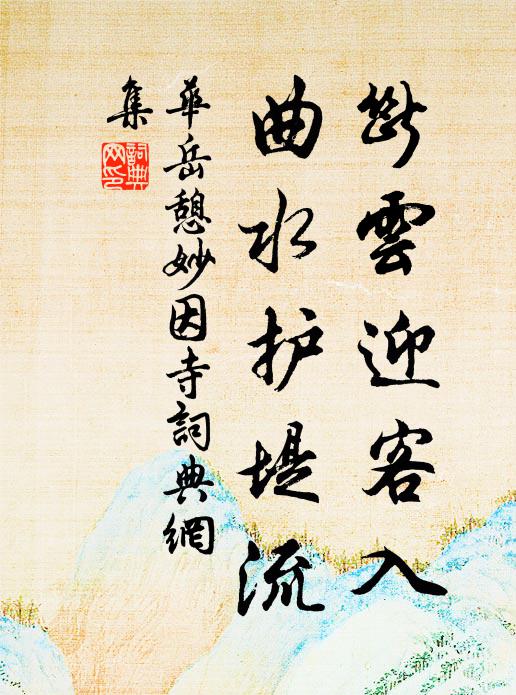 断雲迎客入
曲水护堤流
華岳憩妙因寺詞典網
集
詞典
网印